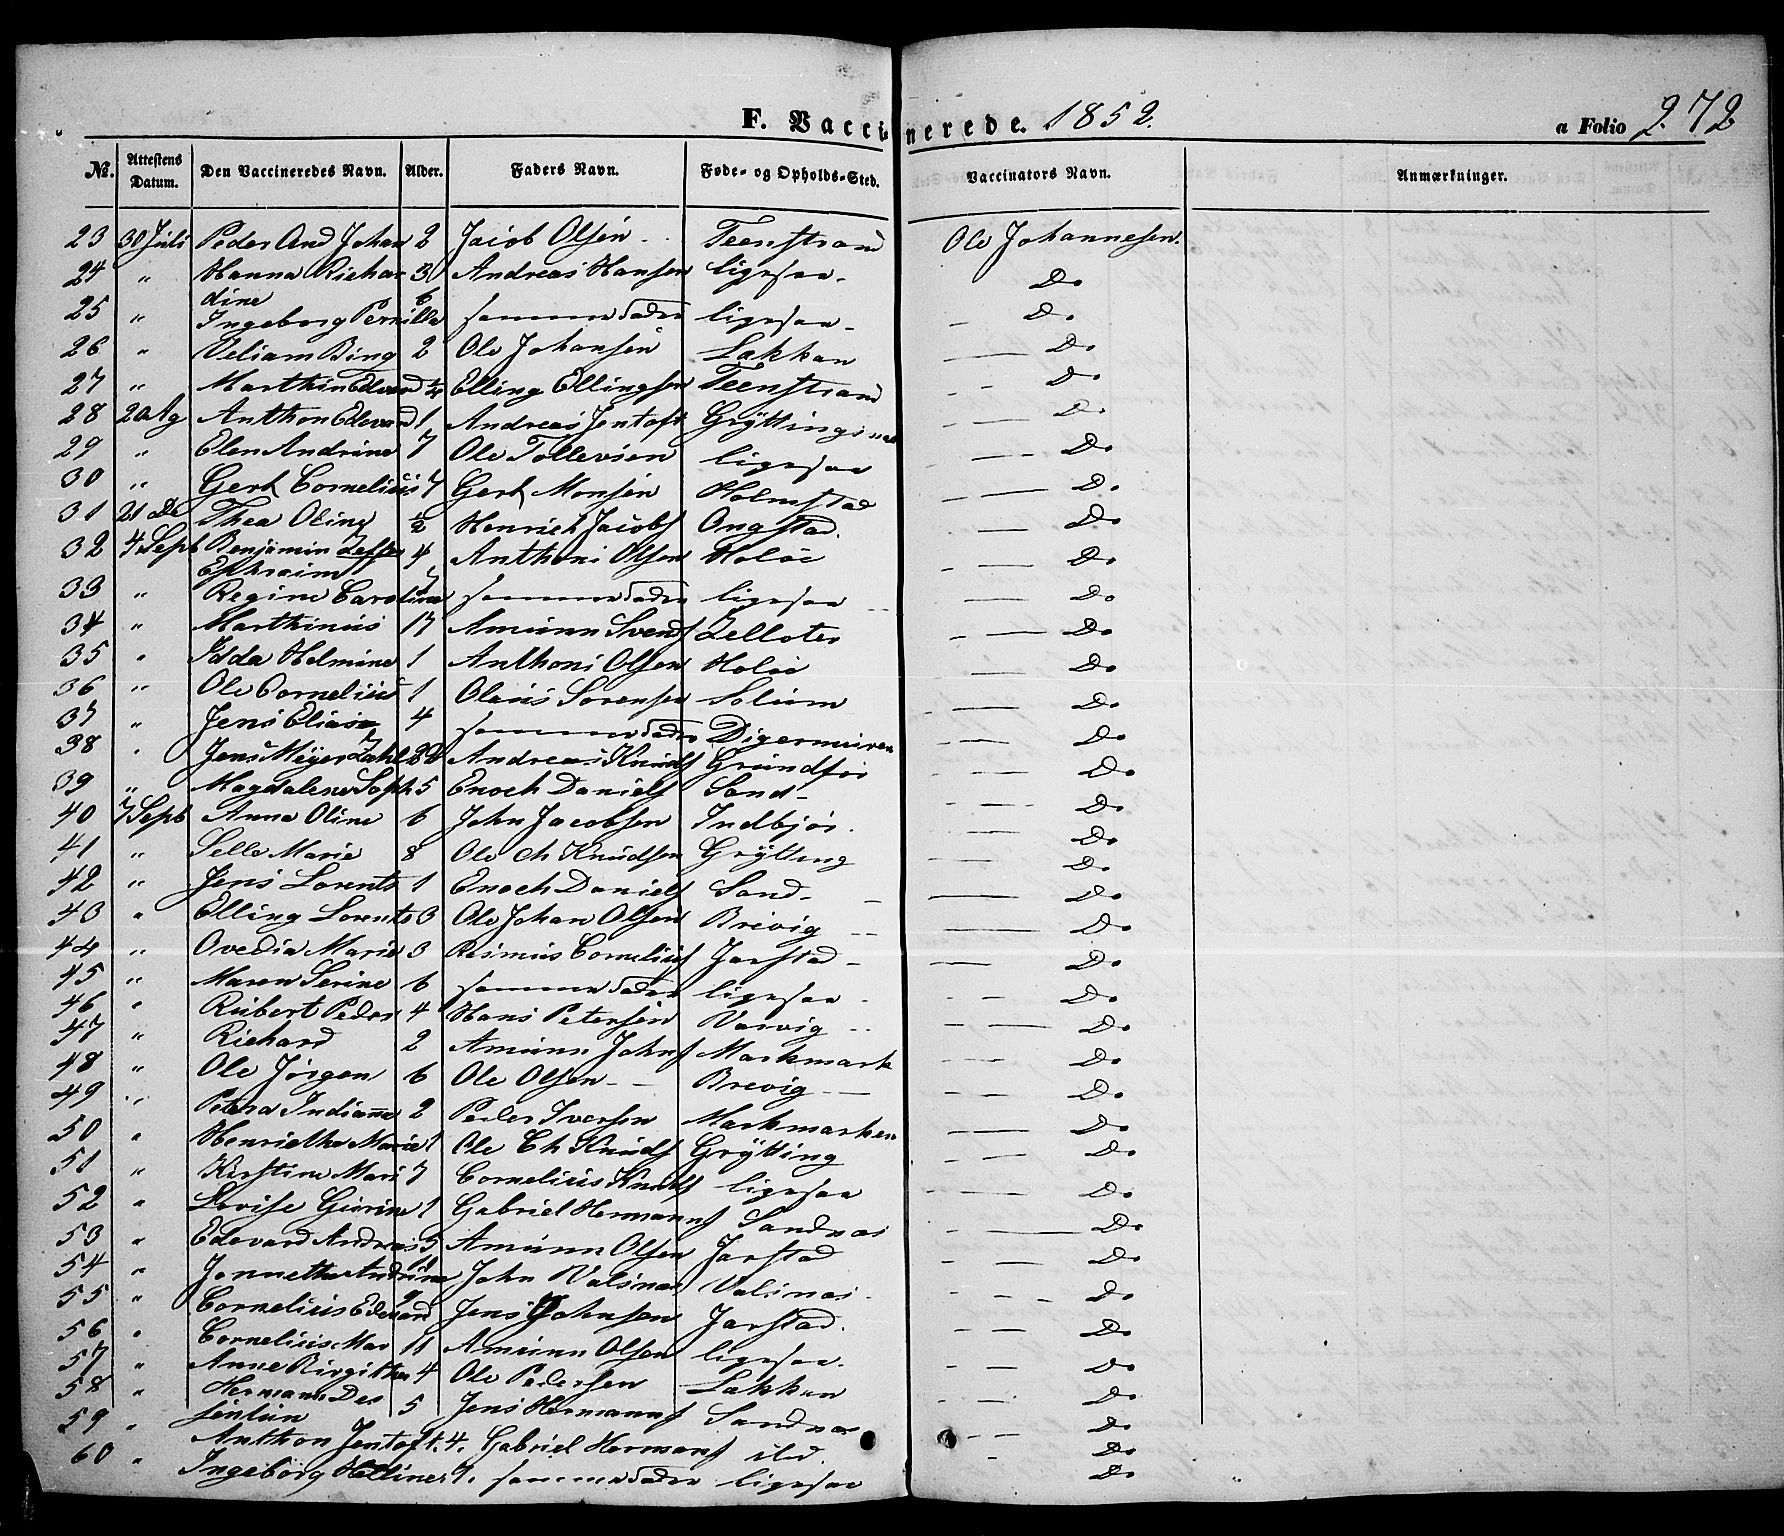 F. Vaccinerede. 1852. a Folio 272
No. Attestens Datum. Den Vaccineredes Navn. Alder. Faders Navn. Føde- og Opholds-Sted. Vaccinators Navn. Anmærkninger.
23 30 Juli Peder And Johan 2 Jacob Olsen Teenstrand Ole Johannesen.
24 " Hanna Richar 3 Andreas Hansen ligesaa Do
dine
25 " Ingeborg Pernille 6 samme Fader ligesaa Do
26 " Veliam Bing 2 Ole Johansen Lakkan Do
27 " Marthin Edevard 1/4 Elling Ellingsen Teenstrand Do
28 20 Ag Anthon Edevard 1 Andreas Jentoft Gryttingsnæs Do
29 " Elen Andrine 7 Ole Tollevsen ligesaa Do
30 " Gert Cornelius 7 Gert Monsen Holmstad Do
31 21 de Thea Oline 1/2 Henrich Jacobs Ongstad. Do
32 4 Sept Benjamin 4 Anthoni Olsen Holøe Do
Ephraim
33 " Regine Caroline 7 samme Fader ligesaa Do
34 " Marthinus 17 Amunn Svends Do
35 " Idda Helmine 1 Anthoni Olsen Holøe Do
36 " Ole Cornelius 1 Olaus Sorensen Solium Do
37 " Jens Elias 4 samme Fader Digermuiren Do
38 " Jens Meyer Zahl Andreas Knuds Grundfør Do
39 " Magdalene Soph 5 Enoch Daniels Sand Do
40 7 Sept Anna Oline 6 John Jacobsen Indbjør. Do
41 " Selle Marie 8 Ole Ch Knudsen Grytting Do
42 " Jens Lorents 1 Enoch Daniels Sand Do
43 " Elling Lorents 3 Ole Johan Olsen Brevig Do
44 " Ovedia Marie 3 Rasmus Cornelius Jarstad Do
45 " Maren Serine 6 samme Fader ligesaa Do
46 " Rubert Peder 4 Hans Petersen Varvig Do
47 " Richard 2 Amunn Johns Markmark Do
48 " Ole Jörgen 6 Ole Olsen Brevig Do
49 " Petera Indianne 2 Peder Iversen Markmarken Do
50 " Henriethe Marie 1 Ole Ch Knuds Grytting Do
51 " Kirstine Mari 7 Cornelius Knuds ligesaa Do
52 " Lovise Gurine 1 Gabriel Hermanns Sandnæs Do
53 " Edevard Andreas 5 Amunn Olsen Jarstad Do
54 " Jonnetha Andrina 11 John Valsnæs Valsnæs Do
55 " Cornelius Edevard 9 Jens Johnsen Jarstad. Do
56 " Cornelius Mar 11 Amunn Olsen ligesaa. Do
57 " Anne Birgitha 4 Ole Pedersen Lakkan Do
58 " Hermann Des 5 Jens Hermanns Sandnæs Do
59 " Anthon Jentoft. 4. Gabriel Hermans Do
60 " Ingeborg 1. samme Fader ligesaa Do